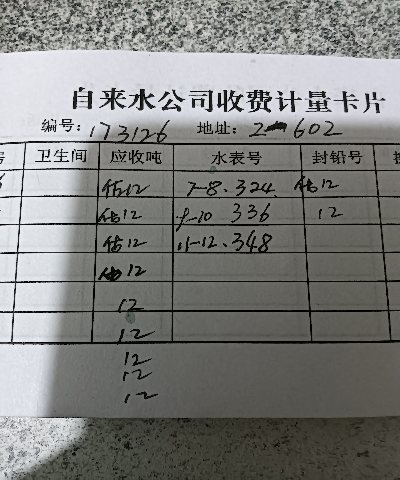 自来水公司收费计量卡片
编号: 173126 地址: 2-602
号 卫生间 应收吨 水表号 封铅号
估12 7-8. 324 估12
估12 9-10 336 12
估12 11-12. 348
估12
12
12
12
12
12